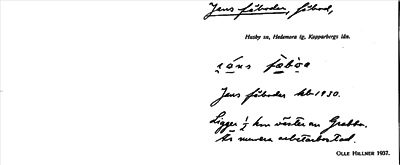 Jans fäboden, fäbod,
Husby sn, Hedemora tg, Kopparbergs län.
Jans fäboden kb 1930.
Ligger ½ km väster om Grabbo.
Är numera arbetarbostad.
OLLE HILLNER 1937.